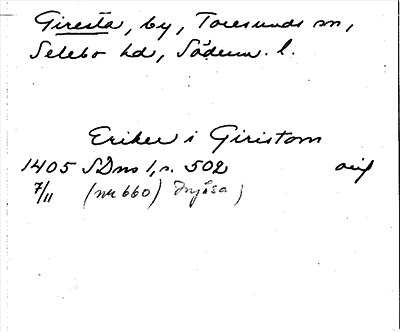 Giresta, by, Toresunds sn,
Selebo hd, Söderm. l.
Eriker i Giristom
1405 SDns 1, s. 502 orig
7/11 (nr 660) Mjösa)